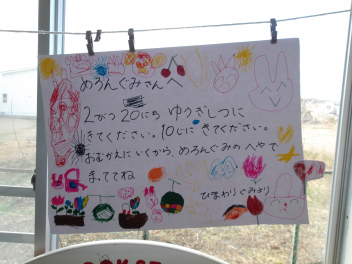 めろんぐみさんへ
2がつ20にち ゆうぎしつに
きてください。10じに きてください。
おむかえに いくから、めろんぐみの へやで
まっててね
ひまわりぐみより